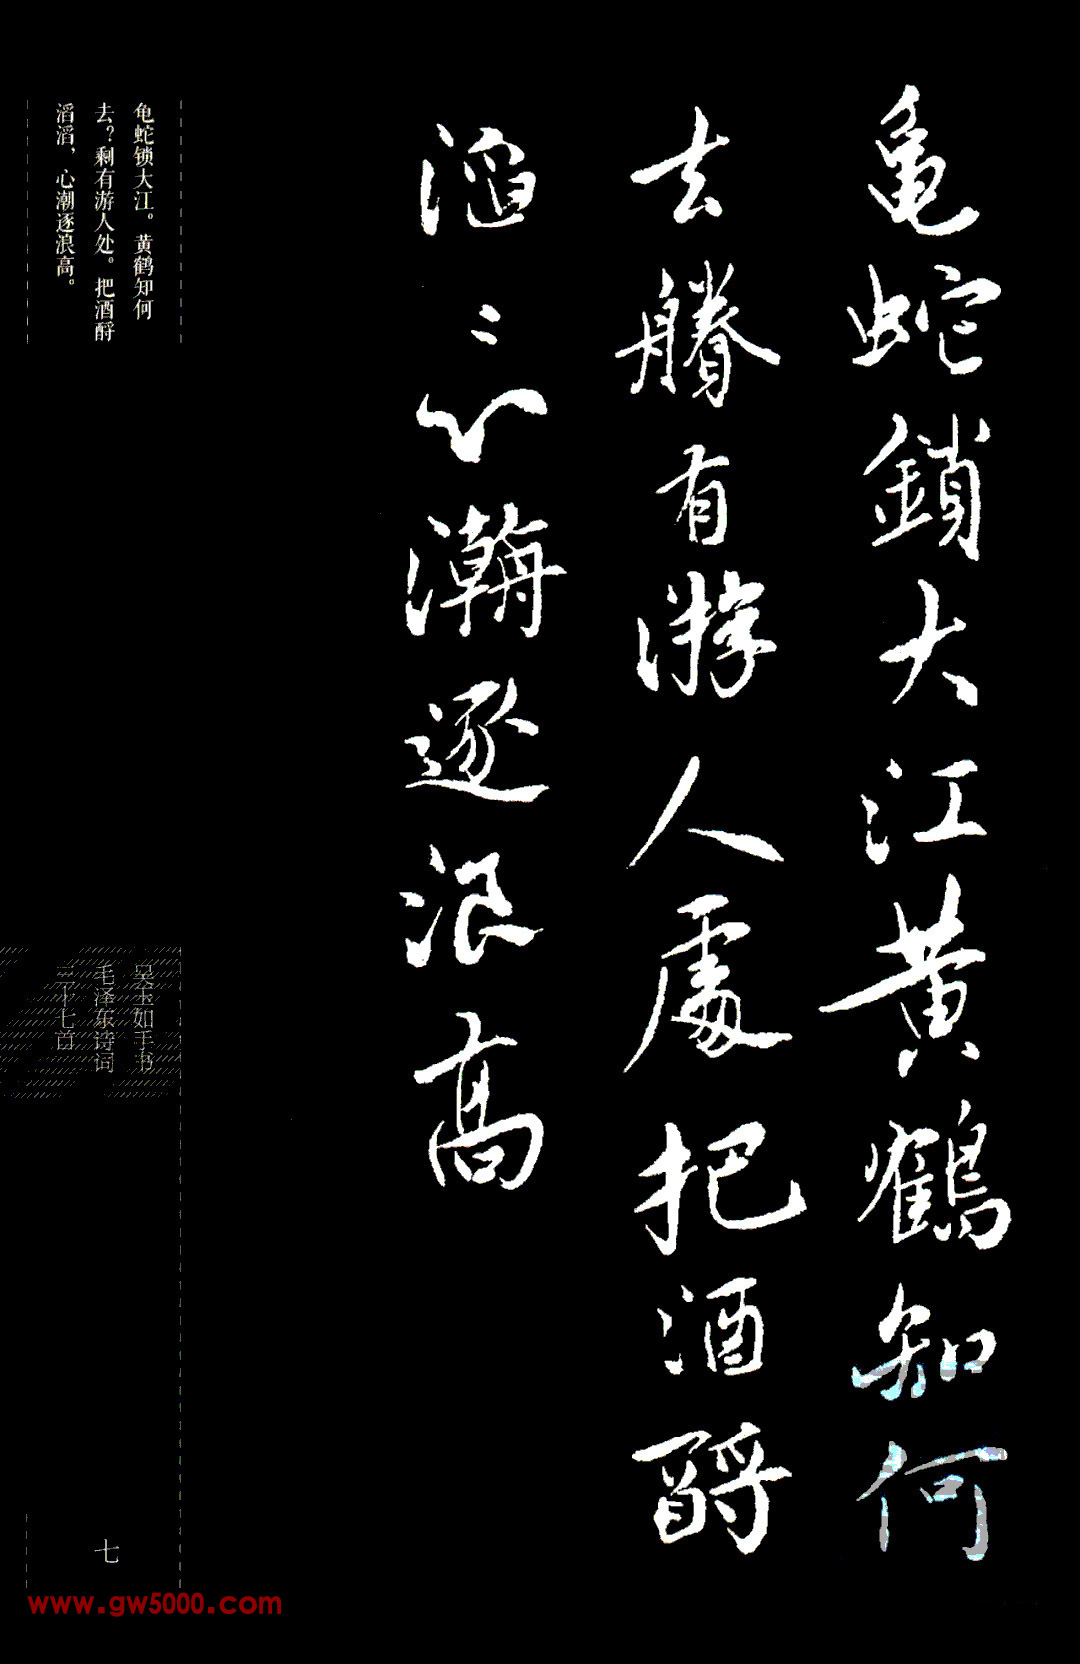 龜蛇鎖大江黃鶴知何
去賸有游人處把酒酹
滔〻心潮逐浪高
龟蛇锁大江。黄鹤知何
去？剩有游人处。把酒酹
滔滔，心潮逐浪高。
吴玉如手书
毛泽东诗词
三十七首
七
www.gw5000.com